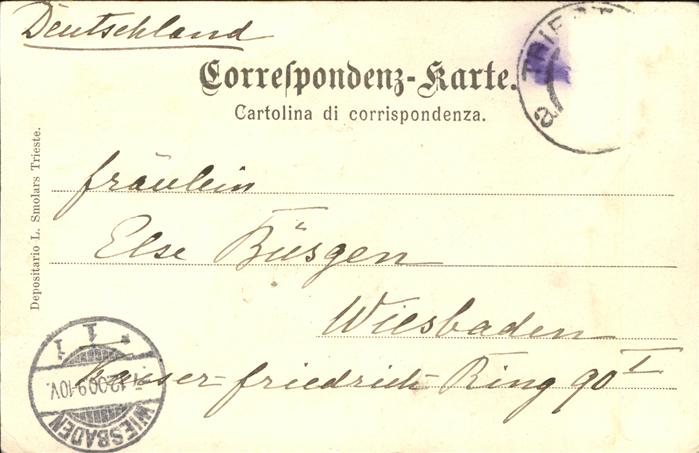 Deutschland
TRIEST
a
Correspondenz-Karte.
Cartolina di corrispondenza.
Depositario L. Smolars Trieste.
Fräulein
Else Büsgen
Wiesbaden
Kaiser-Friedrich Ring 90 I
WIESBADEN
* 1 i
12.00.9-10V.